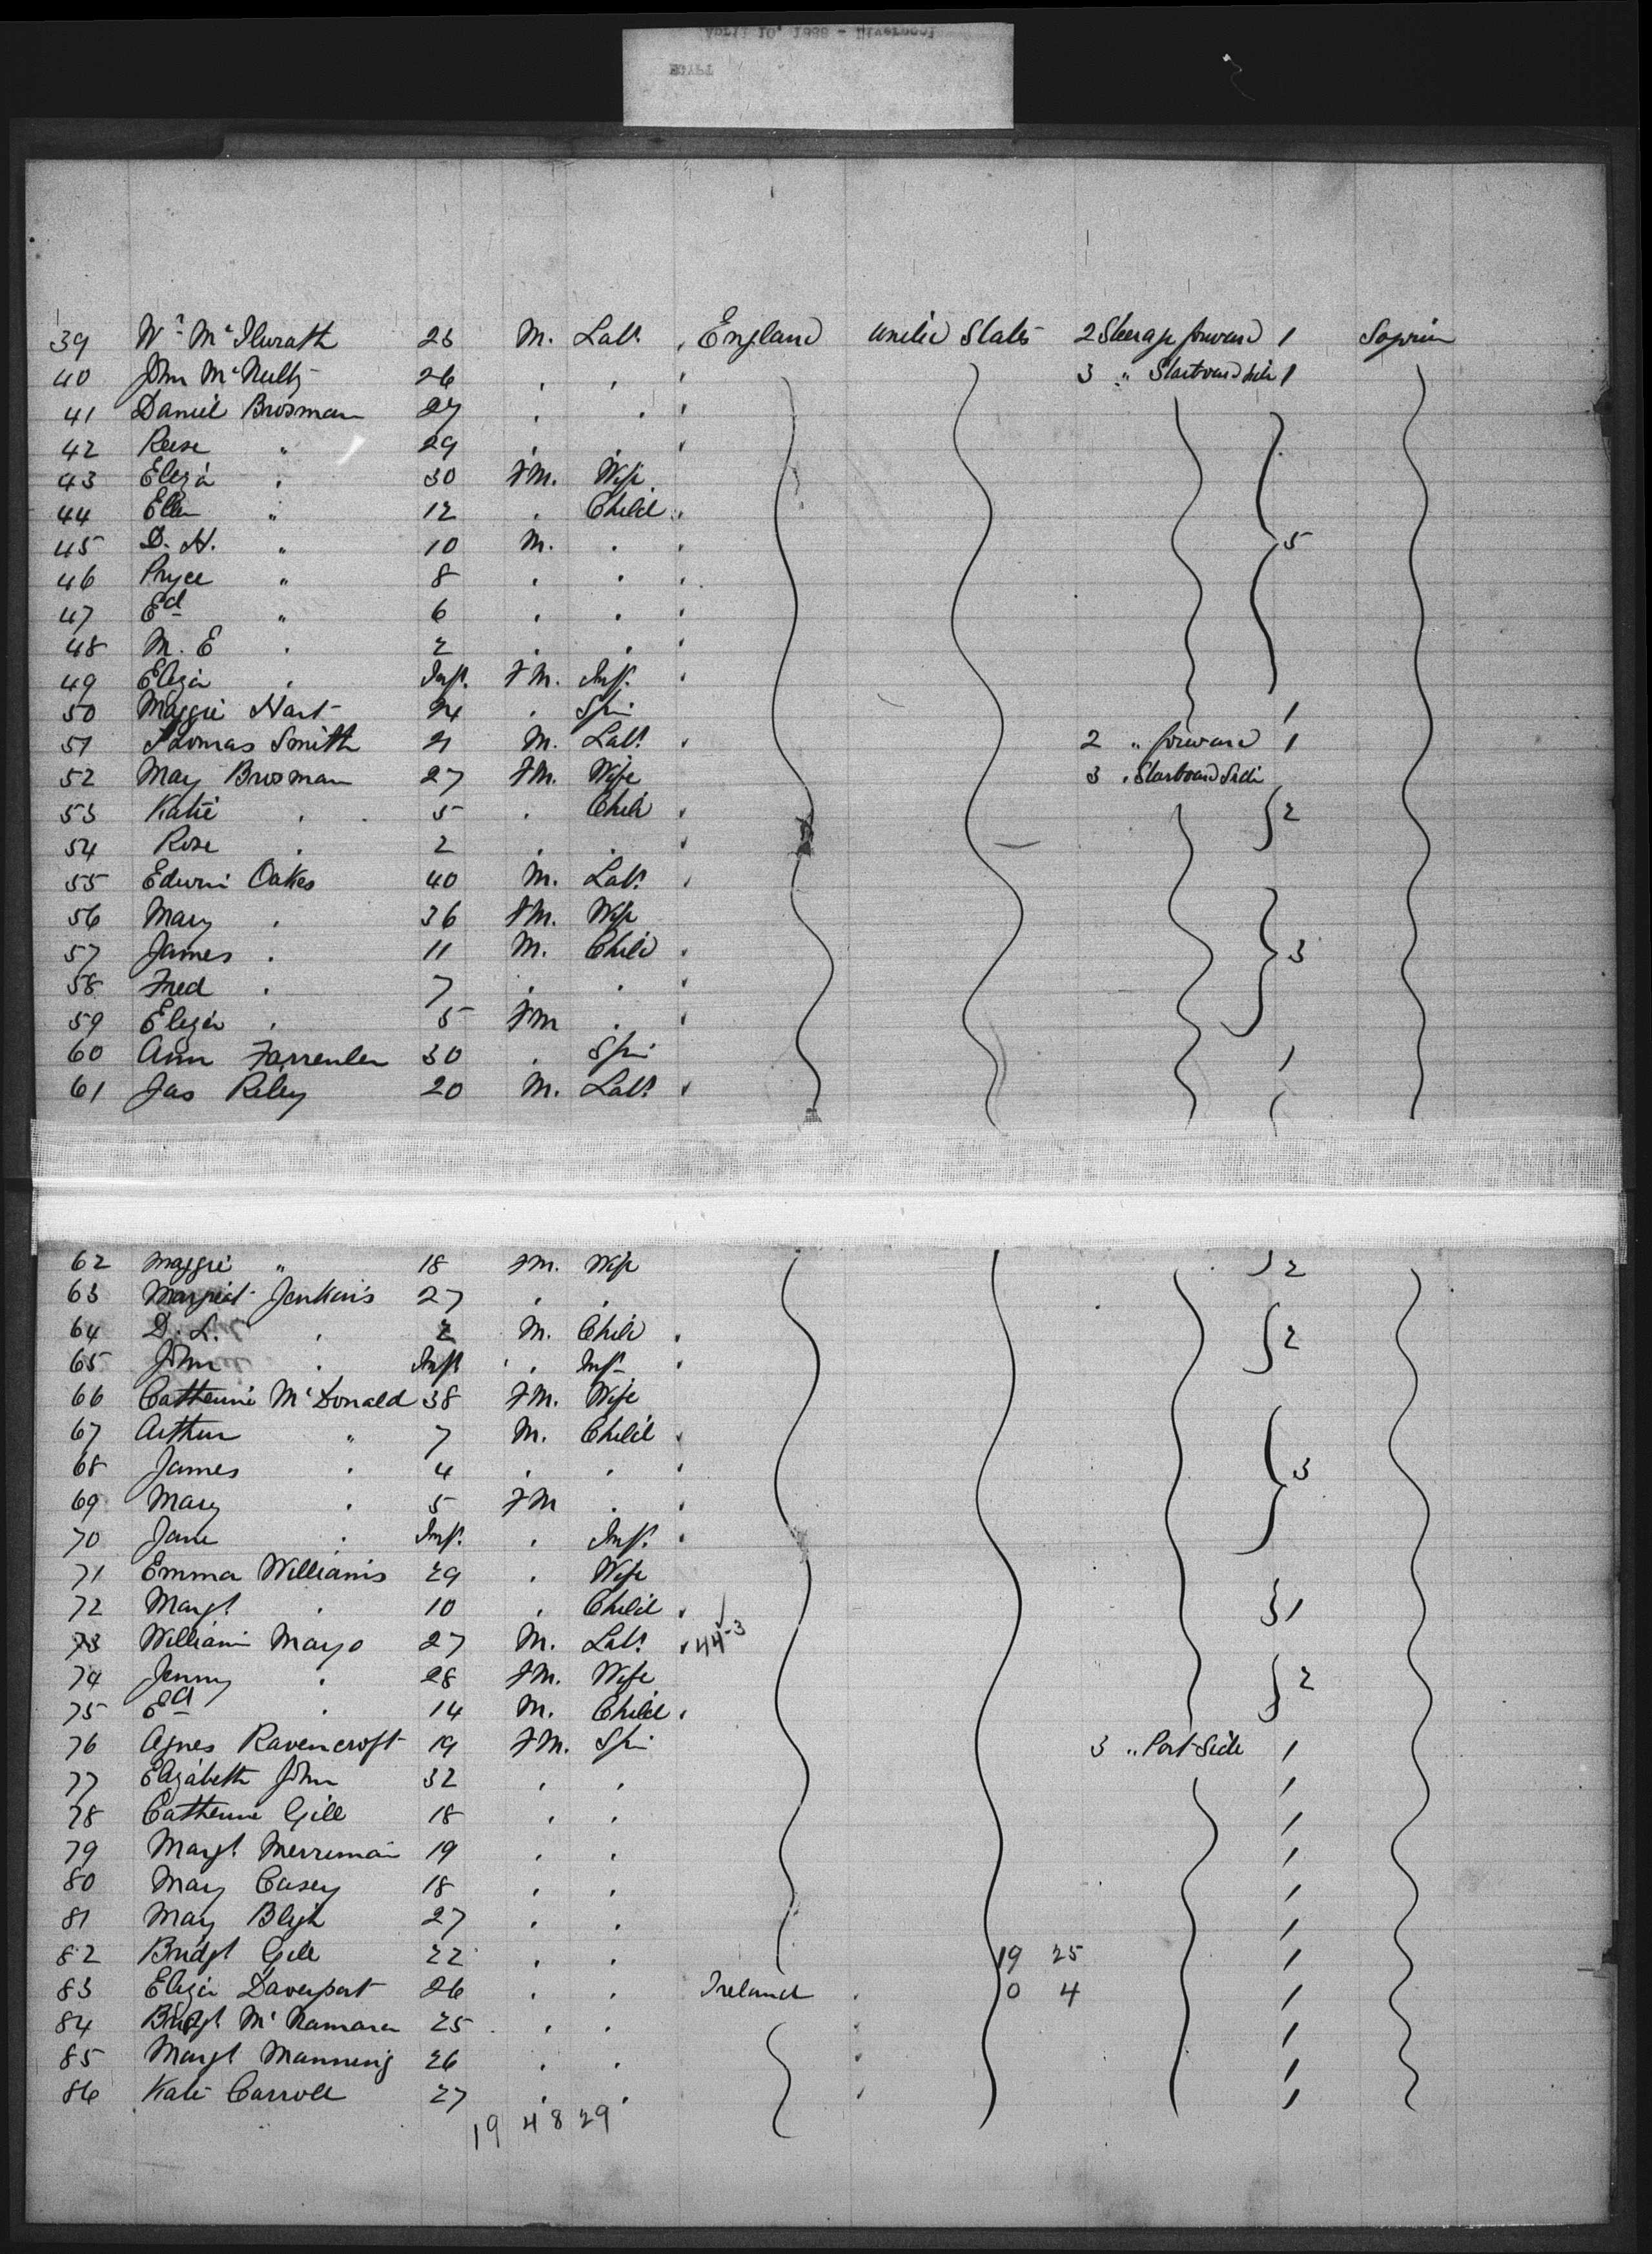 April 10, 1888 - Liverpool
EGYPT
39 Wm McIlwrath 23 M. Labr England United States 2 Steerage forward 1 Sojourn
40 John McNulty 26 " " 3 " Starboard Side 1
41 Daniel Brosman 27 " "
42 Reese " 29 " "
43 Eliza " 30 FM. Wife
44 Ellen " 12 " Child
45 D. H. " 10 M. " 5
46 Pryce " 8 " "
47 Ed " 6 " "
48 M. E " 2 " "
49 Eliza " Inft. FM. Inft.
50 Maggie Hart 24 " Spin 1
51 Thomas Smith 21 M. Labr 2 " forward 1
52 Mary Brosman 27 FM. Wife 3 " Starboard Side
53 Katie " 5 " Child 2
54 Rose " 2 " "
55 Edwin Oakes 40 M. Labr
56 Mary " 36 FM. Wife
57 James " 11 M. Child 3
58 Fred " 7 " "
59 Eliza " 5 FM "
60 Ann 30 " Spin 1
61 Jas Riley 20 M. Labr
62 Maggie " 18 FM. Wife 2
63 Margret Jenkins 27 " "
64 D. L. " 2 M. Child 2
65 John " Inft " Inft
66 Catherine McDonald 38 FM. Wife
67 Arthur " 7 M. Child
68 James " 4 " " 3
69 Mary " 5 FM "
70 Jane " Inft. " Inft.
71 Emma Williams 29 " Wife
72 Margt " 10 " Child 1
73 William Mayo 27 M. Labr 44-3
74 Jenny " 28 FM. Wife 2
75 Ed " 14 M. Child
76 Agnes Ravencroft 19 FM. Spin 3 " Port Side 1
77 Elizabeth John 32 " " 1
78 Catherine Gill 18 " " 1
79 Margt Merriman 19 " " 1
80 Mary Casey 18 " " 1
81 Mary Bligh 27 " " 1
82 Bridgt Gill 22 " " 19 25 1
83 Eliza Davenport 26 " " Ireland 0 4 1
84 Bridgt McNamara 25 " " 1
85 Margt Manning 26 " " 1
86 Kate Carroll 27 " " 1
19 48 29